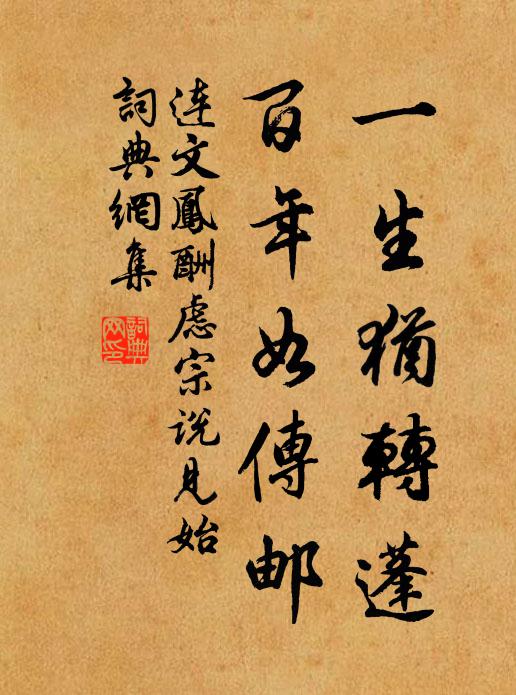 一生猶轉蓬
百年如傳邮
連文鳳酬慮宗說見始
詞典網集
詞典